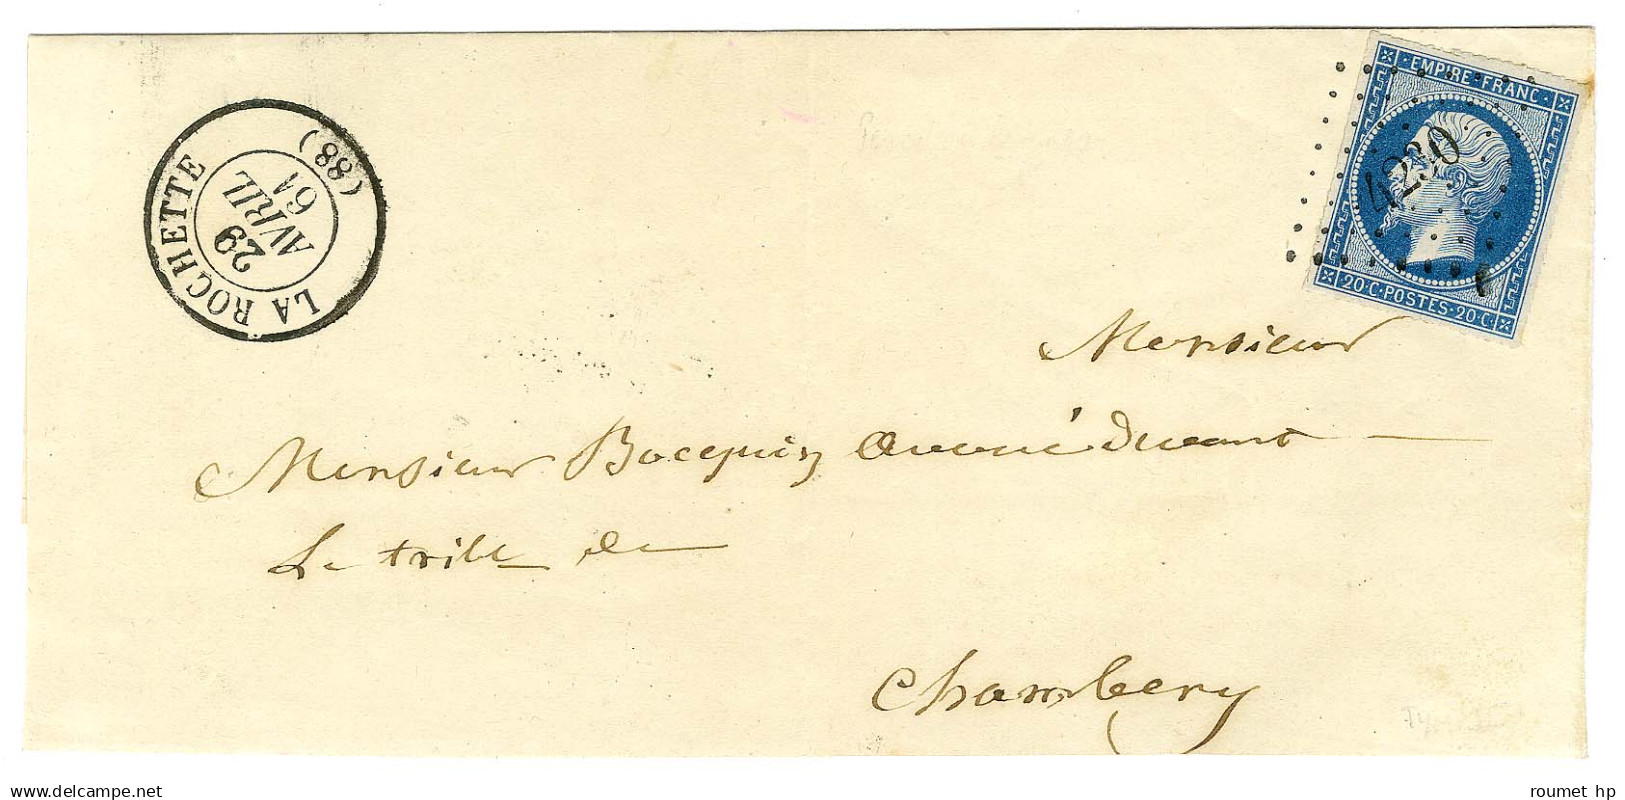 LA ROCHETTE
(88)
29
AVRIL
61
EMPIRE · FRANC ·
4230
20 · C · POSTES · 20 · C ·
Monsieur
Monsieur Bocquin Avoué devant
Le tribl de
Chambery
roumet hp